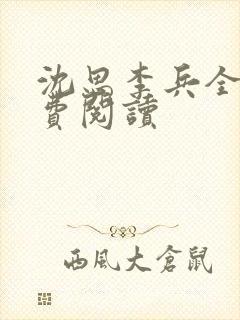 沈思李兵全
費閱讀
西風大倉鼠